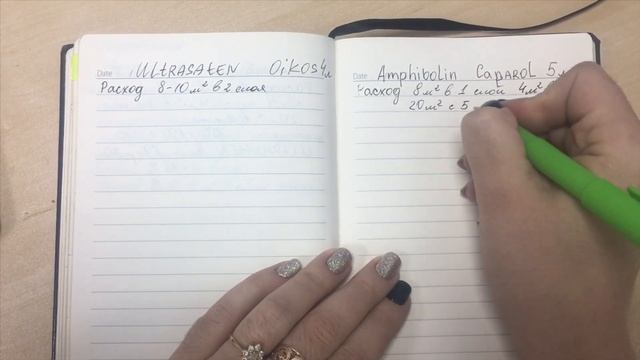 Date
ULTRASATEN OIKOS 4л
Расход 8-10 м² в 2 слоя
Date
Amphibolin CAPAROL 5
Расход 8 м² в 1 слой 4м²
20м² с 5